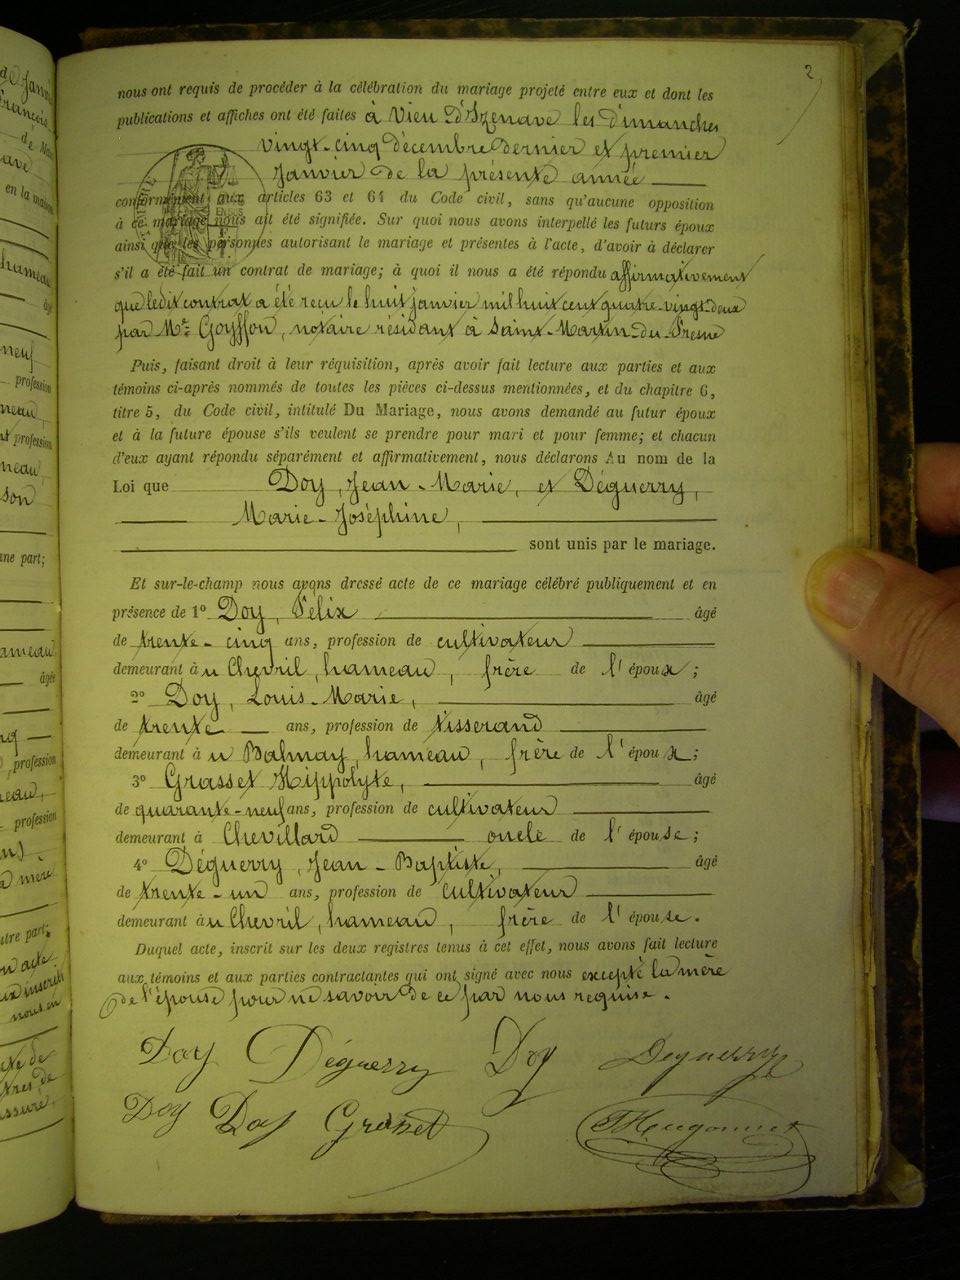 2
nous ont requis de procéder à la célébration du mariage projeté entre eux et dont les
publications et affiches ont été faites à Vieu d'Izenave les dimanches
vingt-cinq décembre dernier et premier
Janvier de la présente année
conformément aux articles 63 et 64 du Code civil, sans qu'aucune opposition
à ce mariage nous ait été signifiée. Sur quoi nous avons interpellé les futurs époux
ainsi que les personnes autorisant le mariage et présentes à l'acte, d'avoir à déclarer
s'il a été fait un contrat de mariage; à quoi il nous a été répondu affirmativement
que ledit contrat a été reçu le huit janvier mil huit cent quatre-vingt-deux
par Me Goyffon, notaire résidant à Saint-Martin-du-Fresne
Puis, faisant droit à leur réquisition, après avoir fait lecture aux parties et aux
témoins ci-après nommés de toutes les pièces ci-dessus mentionnées, et du chapitre 6,
titre 5, du Code civil, intitulé Du Mariage, nous avons demandé au futur époux
et à la future épouse s'ils veulent se prendre pour mari et pour femme; et chacun
d'eux ayant répondu séparément et affirmativement, nous déclarons Au nom de la
Loi que Doy, Jean-Marie, et Déguerry,
Marie-Joséphine,
sont unis par le mariage.
Et sur-le-champ nous avons dressé acte de ce mariage célébré publiquement et en
présence de 1° Doy, Félix âgé
de trente-cinq ans, profession de cultivateur
demeurant à u Chevril, hameau, frère de l'époux;
2° Doy, Louis-Marie, âgé
de trente ans, profession de tisserand
demeurant à u Balmay, hameau, frère de l'époux;
3° Grasset Hippolyte, âgé
de quarante-neuf ans, profession de cultivateur
demeurant à Chevillard oncle de l'épouse;
4° Déguerry, Jean-Baptiste, âgé
de trente-un ans, profession de cultivateur
demeurant à u Chevril, hameau, frère de l'épouse.
Duquel acte, inscrit sur les deux registres tenus à cet effet, nous avons fait lecture
aux témoins et aux parties contractantes qui ont signé avec nous excepté la mère
de l'épouse pour ne savoir de ce par nous requise.
Doy Déguerry Doy Deguerry
Doy Doy Grasset Hugonnet